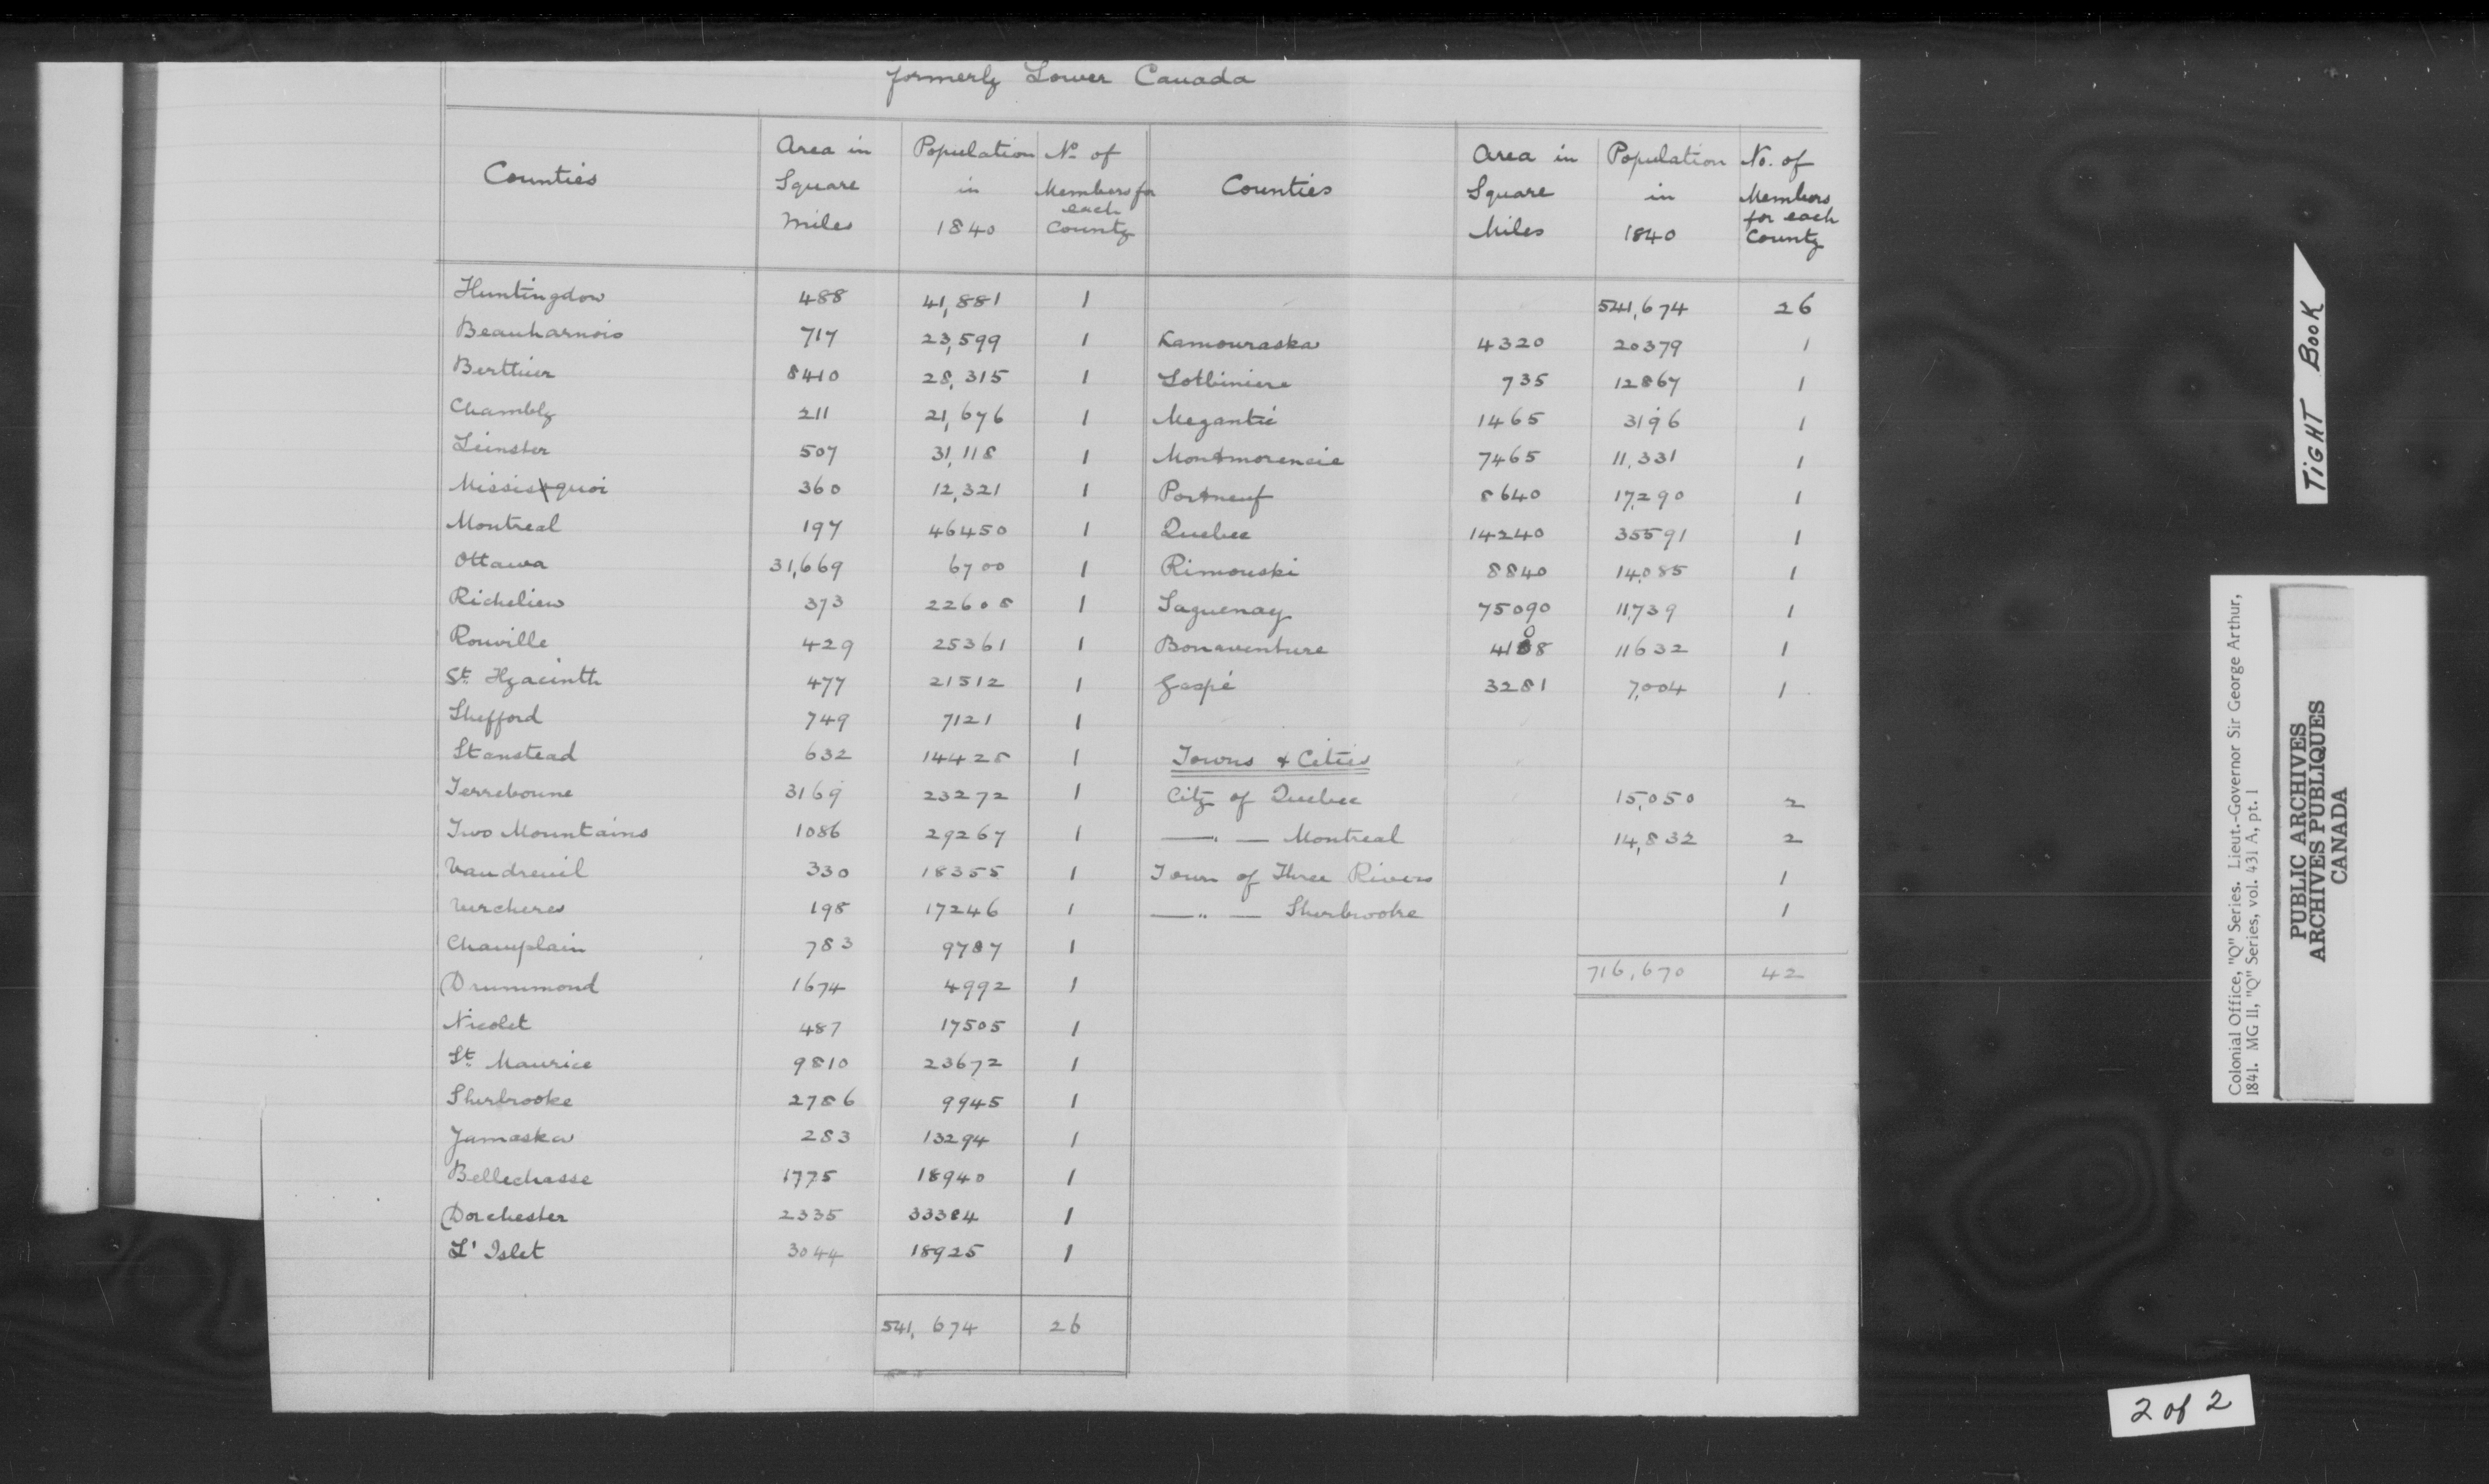 formerly Lower Canada
Counties | Area in Square Miles | Population in 1840 | No. of Members for each County | Counties | Area in Square Miles | Population in 1840 | No. of Members for each County
Huntingdon | 488 | 41,881 | 1 | | | 541,674 | 26
Beauharnois | 717 | 23,599 | 1 | Kamouraska | 4320 | 20379 | 1
Berthier | 8410 | 28,315 | 1 | Lotbiniere | 735 | 12867 | 1
Chambly | 211 | 21,676 | 1 | Megantic | 1465 | 3196 | 1
Leinster | 507 | 31,118 | 1 | Montmorencie | 7465 | 11,331 | 1
Missisquoi | 360 | 12,321 | 1 | Portneuf | 8640 | 17,290 | 1
Montreal | 197 | 46450 | 1 | Quebec | 14240 | 35591 | 1
Ottawa | 31,669 | 6700 | 1 | Rimouski | 8840 | 14,085 | 1
Richelieu | 373 | 22608 | 1 | Saguenay | 75090 | 11,739 | 1
Rouville | 429 | 25361 | 1 | Bonaventure | 4108 | 11632 | 1
St. Hyacinth | 477 | 21512 | 1 | Gaspé | 3281 | 7,004 | 1
Shefford | 749 | 7121 | 1
Stanstead | 632 | 14428 | 1 | Towns & Cities
Terrebonne | 3169 | 23272 | 1 | City of Quebec | | 15,050 | 2
Two Mountains | 1086 | 29267 | 1 | —"— Montreal | | 14,832 | 2
Vaudreuil | 330 | 18355 | 1 | Town of Three Rivers | | | 1
Vercheres | 198 | 17246 | 1 | —"— Sherbrooke | | | 1
Champlain | 783 | 9787 | 1
Drummond | 1674 | 4992 | 1 | | | 716,670 | 42
Nicolet | 487 | 17505 | 1
St. Maurice | 9810 | 23672 | 1
Sherbrooke | 2786 | 9945 | 1
Yamaska | 283 | 13294 | 1
Bellechasse | 1775 | 18940 | 1
Dorchester | 2335 | 33384 | 1
L'Islet | 3044 | 18925 | 1
541,674 | 26
TIGHT BOOK
Colonial Office, "Q" Series. Lieut.-Governor Sir George Arthur,
1841. MG 11, "Q" Series, vol. 431 A, pt. 1
PUBLIC ARCHIVES
ARCHIVES PUBLIQUES
CANADA
2 of 2